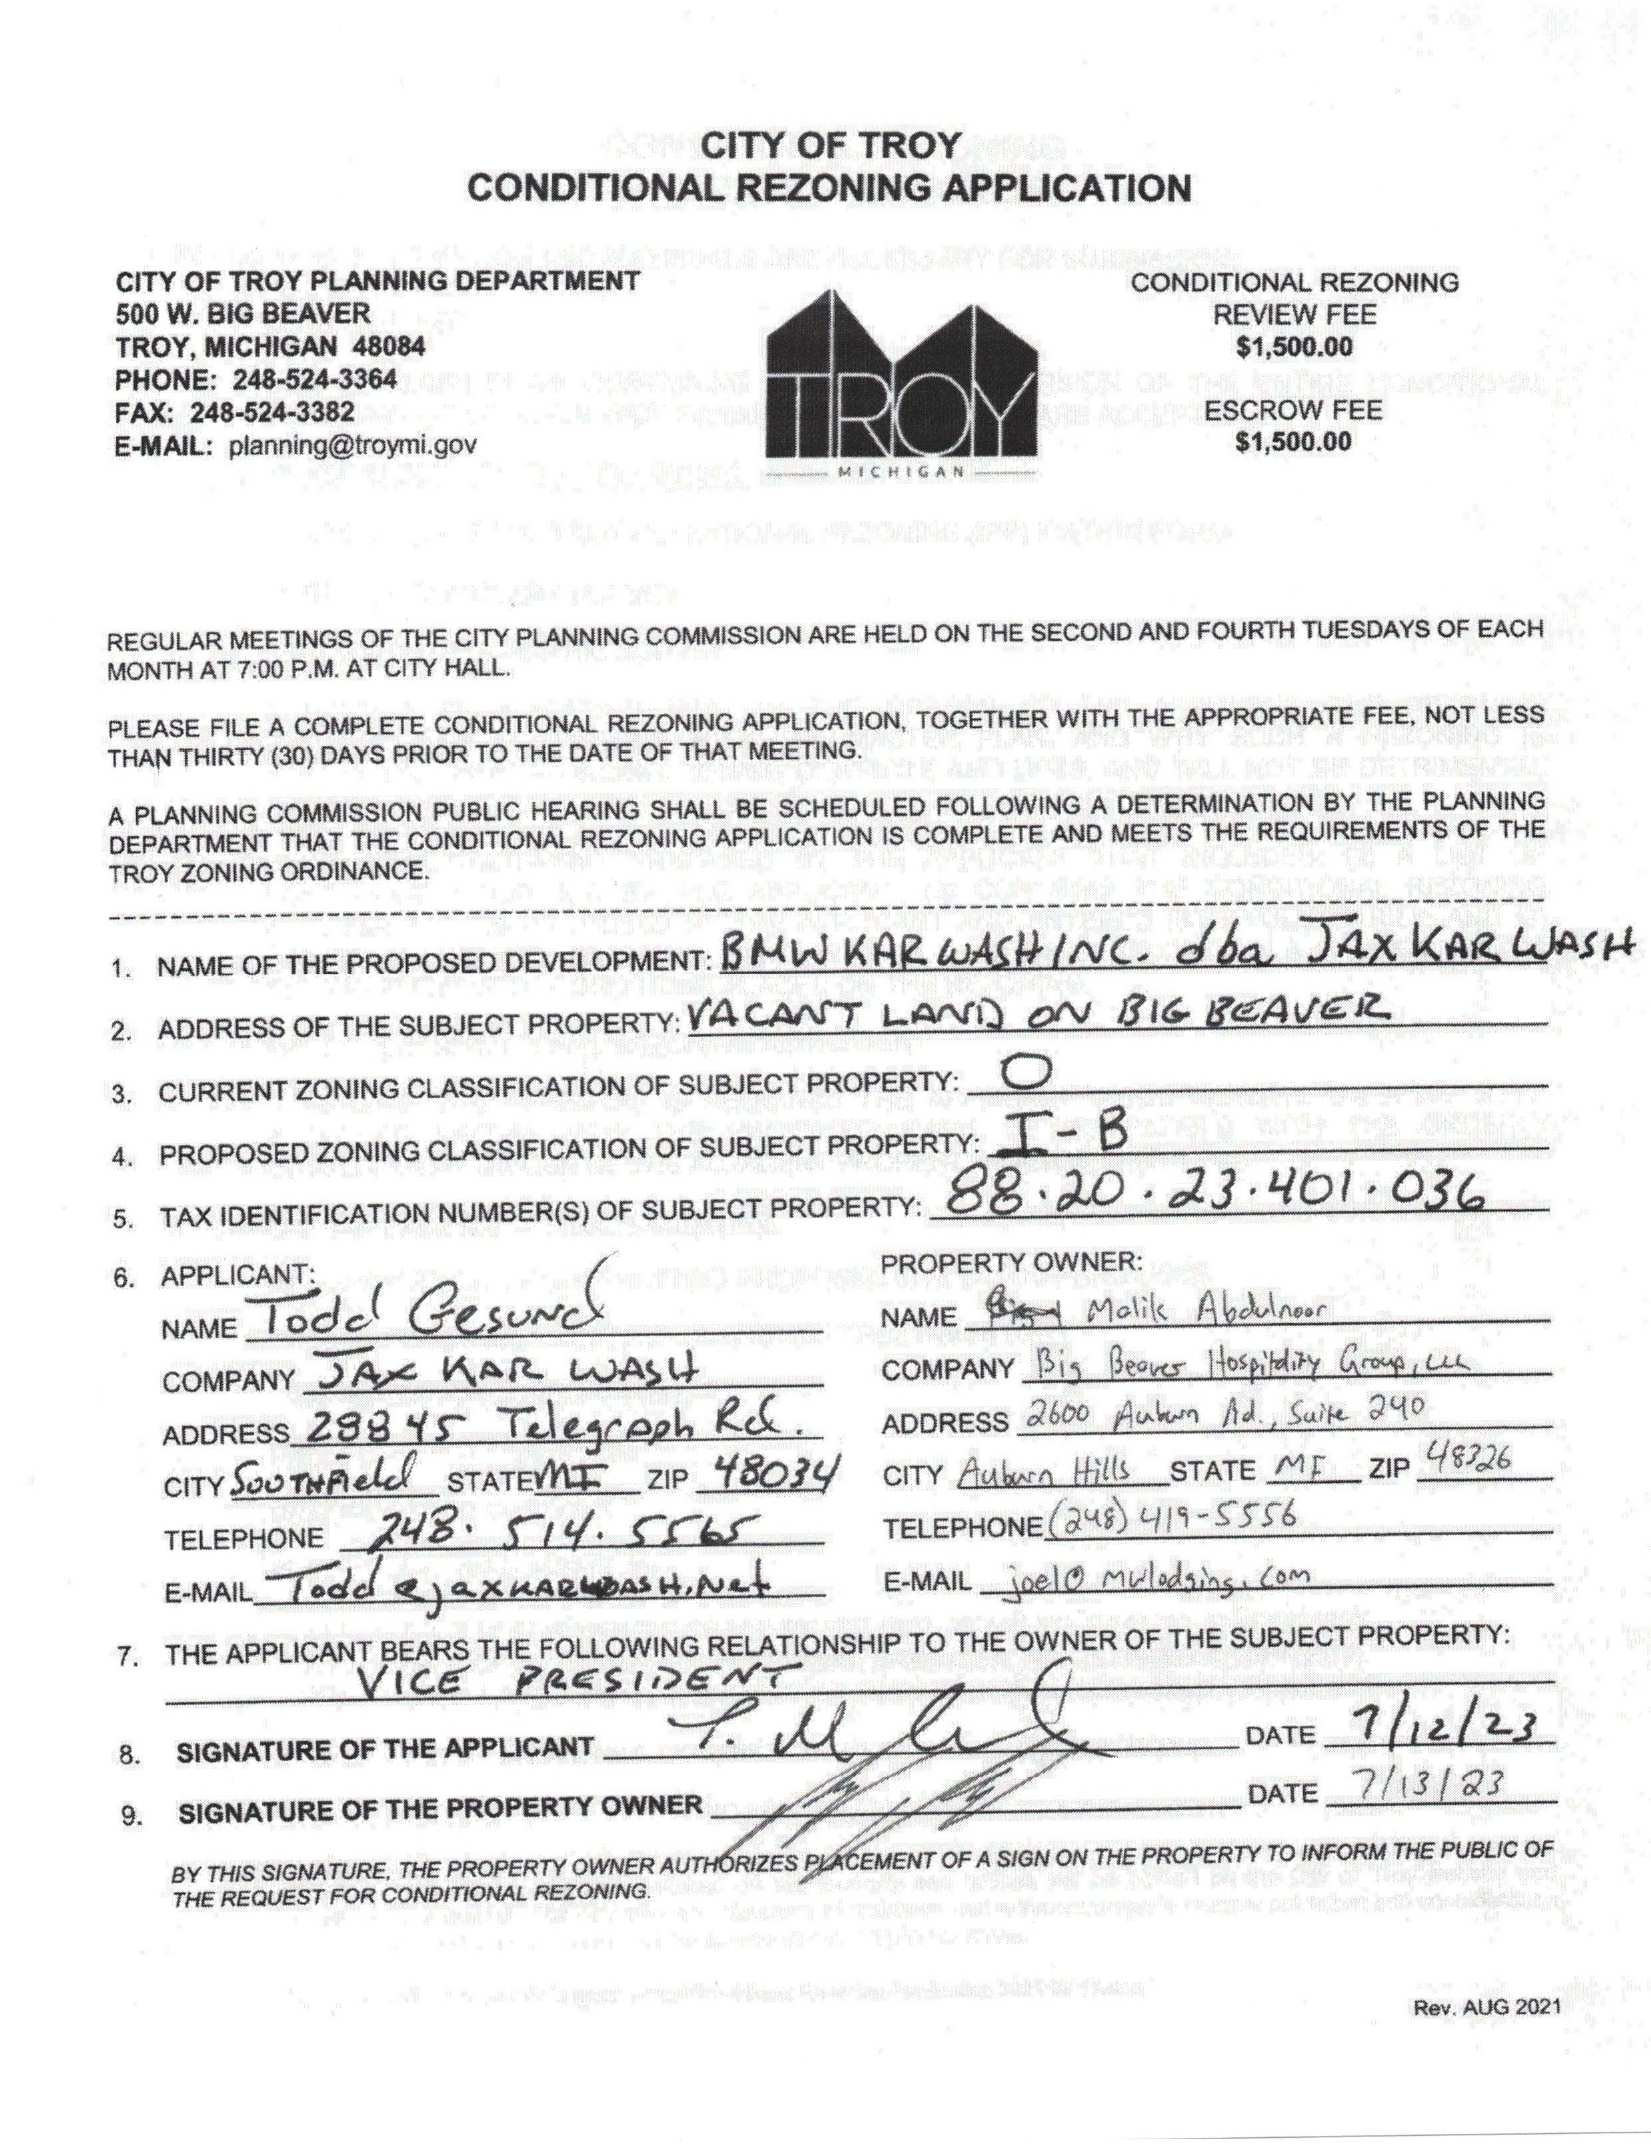 CITY OF TROY
CONDITIONAL REZONING APPLICATION
CITY OF TROY PLANNING DEPARTMENT
500 W. BIG BEAVER
TROY, MICHIGAN 48084
PHONE: 248-524-3364
FAX: 248-524-3382
E-MAIL: planning@troymi.gov
TROY
MICHIGAN
CONDITIONAL REZONING
REVIEW FEE
$1,500.00
ESCROW FEE
$1,500.00
REGULAR MEETINGS OF THE CITY PLANNING COMMISSION ARE HELD ON THE SECOND AND FOURTH TUESDAYS OF EACH
MONTH AT 7:00 P.M. AT CITY HALL.
PLEASE FILE A COMPLETE CONDITIONAL REZONING APPLICATION, TOGETHER WITH THE APPROPRIATE FEE, NOT LESS
THAN THIRTY (30) DAYS PRIOR TO THE DATE OF THAT MEETING.
A PLANNING COMMISSION PUBLIC HEARING SHALL BE SCHEDULED FOLLOWING A DETERMINATION BY THE PLANNING
DEPARTMENT THAT THE CONDITIONAL REZONING APPLICATION IS COMPLETE AND MEETS THE REQUIREMENTS OF THE
TROY ZONING ORDINANCE.
1. NAME OF THE PROPOSED DEVELOPMENT: BMW KAR WASH INC. dba JAX KAR WASH
2. ADDRESS OF THE SUBJECT PROPERTY: VACANT LAND ON BIG BEAVER
3. CURRENT ZONING CLASSIFICATION OF SUBJECT PROPERTY: O
4. PROPOSED ZONING CLASSIFICATION OF SUBJECT PROPERTY: I-B
5. TAX IDENTIFICATION NUMBER(S) OF SUBJECT PROPERTY: 88.20.23.401.036
6. APPLICANT:
NAME Todd Gesund
COMPANY JAX KAR WASH
ADDRESS 28845 Telegraph Rd.
CITY SOUTHField STATE MI ZIP 48034
TELEPHONE 248.514.5565
E-MAIL Todd@jaxKARWASH.Net
PROPERTY OWNER:
NAME Malik Abdulnoor
COMPANY Big Beaver Hospitality Group, LLC
ADDRESS 2600 Auburn Rd., Suite 240
CITY Auburn Hills STATE MI ZIP 48326
TELEPHONE (248) 419-5556
E-MAIL joel@mwlodging.com
7. THE APPLICANT BEARS THE FOLLOWING RELATIONSHIP TO THE OWNER OF THE SUBJECT PROPERTY:
VICE PRESIDENT
8. SIGNATURE OF THE APPLICANT DATE 7/12/23
9. SIGNATURE OF THE PROPERTY OWNER DATE 7/13/23
BY THIS SIGNATURE, THE PROPERTY OWNER AUTHORIZES PLACEMENT OF A SIGN ON THE PROPERTY TO INFORM THE PUBLIC OF
THE REQUEST FOR CONDITIONAL REZONING.
Rev. AUG 2021